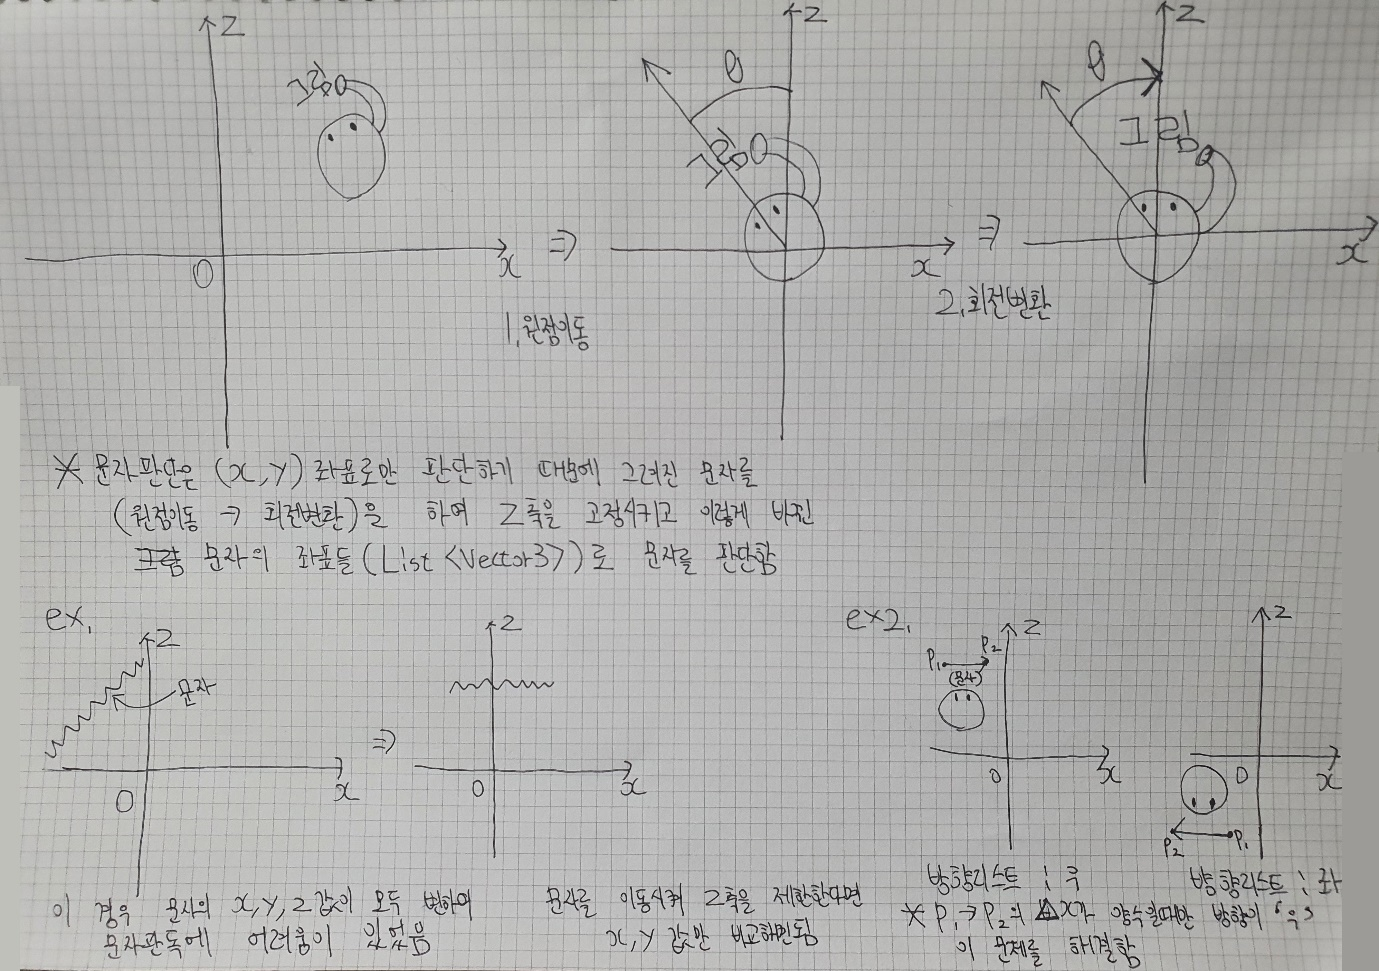 z
x
0
그림
⇒
1. 원점이동
z
θ
그림
x
⇒
2. 회전변환
z
θ
그림
x
* 문자판단은 (x, y) 좌표로만 판단하기 때문에 그려진 문자를
(원점이동 → 회전변환)을 하여 z축을 고정시키고 이렇게 바뀐
문자의 좌표들 (List <Vector3>)로 문자를 판단함
ex.
z
문자
x
0
⇒
z
x
0
이 경우 문자의 x, y, z 값이 모두 변하여
문자판독에 어려움이 있었음
문자를 이동시켜 z축을 제한한다면
x, y 값만 비교해면됨
ex2.
z
P₁
P₂
(문자)
x
0
방향리스트 : 우
z
0
x
P₂
P₁
방향리스트 : 좌
* P₁ → P₂의 △x가 양수일때만 방향이 '우'
이 문제를 해결함